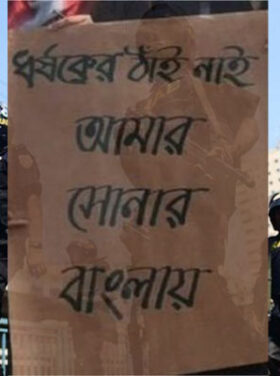 ধর্ষকের ঠাই নাই
আমার
সোনার
বাংলায়